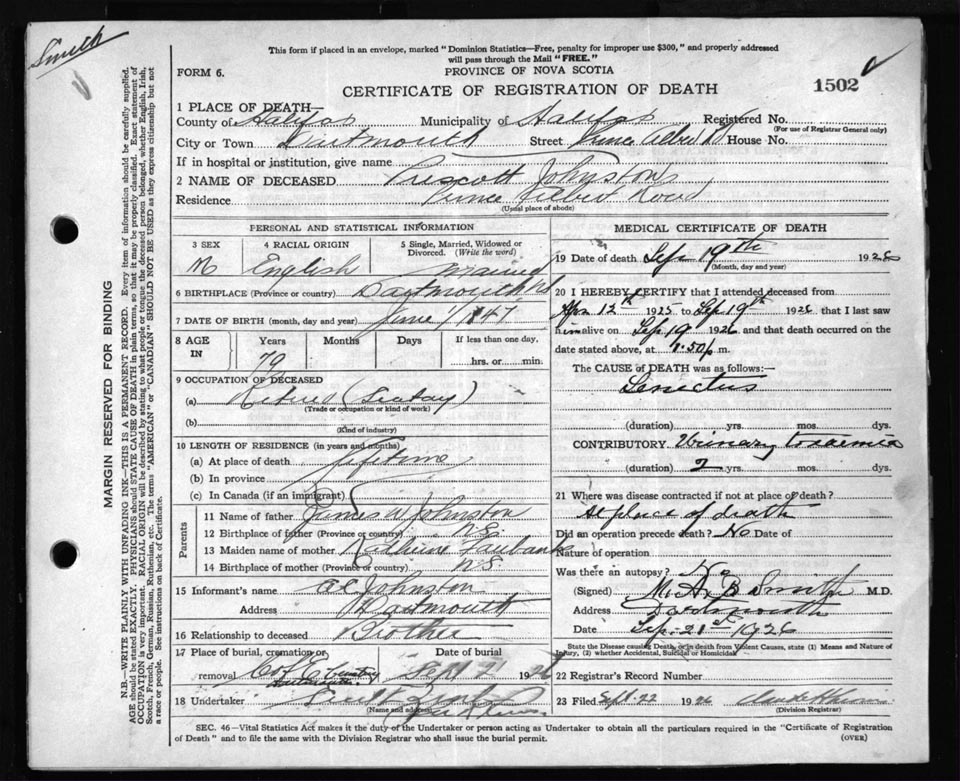 Smith
This form if placed in an envelope, marked "Dominion Statistics—Free, penalty for improper use $300," and properly addressed
will pass through the Mail "FREE."
FORM 6.
PROVINCE OF NOVA SCOTIA
CERTIFICATE OF REGISTRATION OF DEATH
1502
1 PLACE OF DEATH—
County of Halifax Municipality of Halifax Registered No.
(For use of Registrar General only)
City or Town Dartmouth Street Prince Albert Rd House No.
If in hospital or institution, give name
2 NAME OF DECEASED Prescott Johnston
Residence Prince Albert Road
(Usual place of abode)
PERSONAL AND STATISTICAL INFORMATION
3 SEX 4 RACIAL ORIGIN 5 Single, Married, Widowed or
Divorced. (Write the word)
M English Married
6 BIRTHPLACE (Province or country) Dartmouth NS
7 DATE OF BIRTH (month, day and year) June 1/1847
8 AGE IN Years Months Days If less than one day,
79 hrs. or min.
9 OCCUPATION OF DECEASED
(a) Retired
(Trade or occupation or kind of work)
(b)
(Kind of industry)
10 LENGTH OF RESIDENCE (in years and months)
(a) At place of death Lifetime
(b) In province
(c) In Canada (if an immigrant)
Parents
11 Name of father James W Johnston
12 Birthplace of father (Province or country) N.S.
13 Maiden name of mother
14 Birthplace of mother (Province or country) N.S.
15 Informant's name Johnston
Address Dartmouth
16 Relationship to deceased Brother
17 Place of burial, cremation or Date of burial
removal C of E Sept 21 1926
18 Undertaker
(Name and address)
MEDICAL CERTIFICATE OF DEATH
19 Date of death Sep 19th 1926
(Month, day and year)
20 I HEREBY CERTIFY that I attended deceased from
12th 1925 to Sep 19th 1926 that I last saw
him alive on Sep 19 1926 and that death occurred on
date stated above, at 1.50 p m.
The CAUSE of DEATH was as follows:—
Senectus
(duration) yrs. mos. dys.
CONTRIBUTORY. Urinary toxaemia
(duration) 2 yrs. mos. dys.
21 Where was disease contracted if not at place of death?
At place of death
Did an operation precede death? No Date of
Nature of operation
Was there an autopsy? No
(Signed) M. A. B Smith M.D.
Address Dartmouth
Date Sep. 21st 1926
State the Disease causing Death, or in death from Violent Causes, state (1) Means and Nature of
Injury, (2) whether Accidental, Suicidal or Homicidal
22 Registrar's Record Number
23 Filed Sept. 22 1926
(Division Registrar)
SEC. 46—Vital Statistics Act makes it the duty of the Undertaker or person acting as Undertaker to obtain all the particulars required in the "Certificate of Registration
of Death" and to file the same with the Division Registrar who shall issue the burial permit.
(OVER)
MARGIN RESERVED FOR BINDING
N.B.—WRITE PLAINLY WITH UNFADING INK—THIS IS A PERMANENT RECORD. Every item of information should be carefully supplied.
AGE should be stated EXACTLY. PHYSICIANS should STATE CAUSE OF DEATH in plain terms, so that it may be properly classified. Exact statement of
OCCUPATION is very important. RACIAL ORIGIN will be described by stating to what people or tongue the deceased person belonged, whether English, Irish,
Scotch, French, German, Russian, Ruthenian, etc. The terms "AMERICAN" or "CANADIAN" SHOULD NOT BE USED as they express citizenship but not
a race or people. See instructions on back of Certificate.